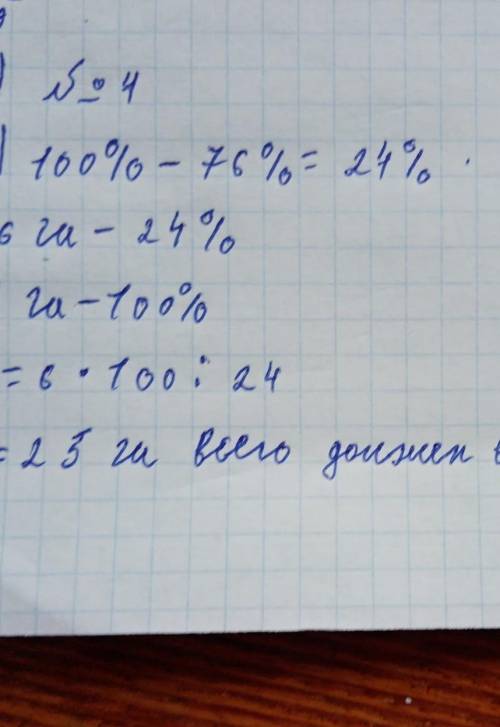 № 4
100% - 76% = 24%.
6 га - 24%
га - 100%
= 6 · 100 : 24
= 25 га всего должен